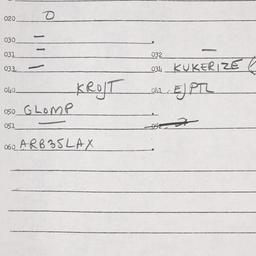 020 D
030 –
031 – 032 –
033 – 034 KUKERIZE (
040 KROJT 041 EJPTL
050 GLOMP
051 –
060 ARB35LAX